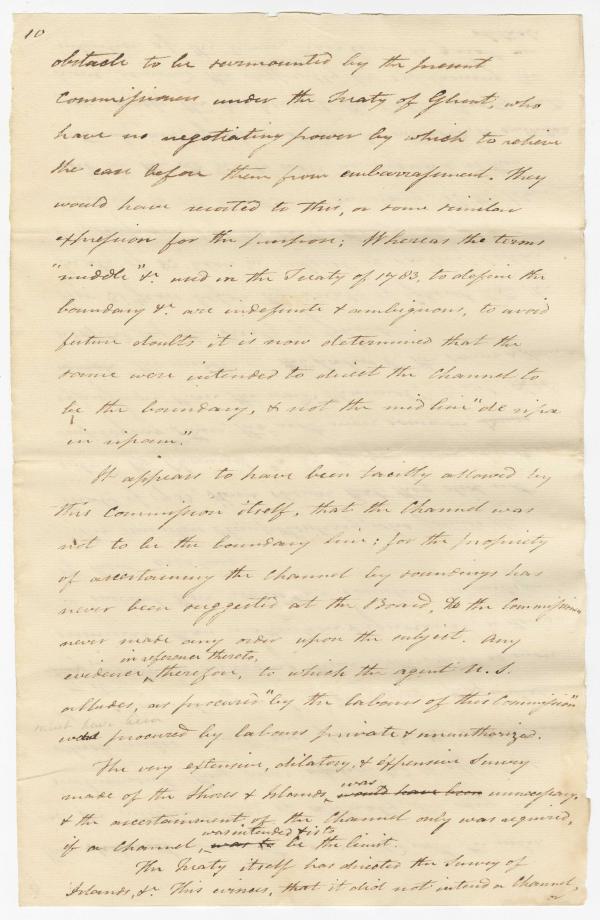 10
obstacle to be surmounted by the present
Commissioners under the Treaty of Ghent, who
have no negotiating power by which to relieve
the case before them from embarrassment. They
would have resorted to this, or some similar
expression for the purpose; Whereas the terms
"middle" &c. used in the Treaty of 1783, to define the
boundary &c. are indefinite & ambiguous, to avoid
future doubts it is now determined that the
same were intended to direct the Channel to
be the boundary, & not the mid line "de ripa
in ripam".
It appears to have been tacitly allowed by
this Commission itself, that the Channel was
not to be the boundary line; for the propriety
of ascertaining the Channel by soundings has
never been suggested at the Board, & the Commission
never made any order upon the subject. Any
in reference thereto,
evidence, therefore, to which the agent U.S.
alludes, as procured "by the labours of this Commission"
must have been
procured by labours private & unauthorized.
The very extensive, dilatory, & expensive Survey
was
made of the Shores & Islands, would have been unnecessary,
& the ascertainment of the Channel only was required,
was intended & is to
if a Channel was to be the limit.
The Treaty itself has directed the Survey of
Islands, &c. This evinces, that it did not intend a Channel,